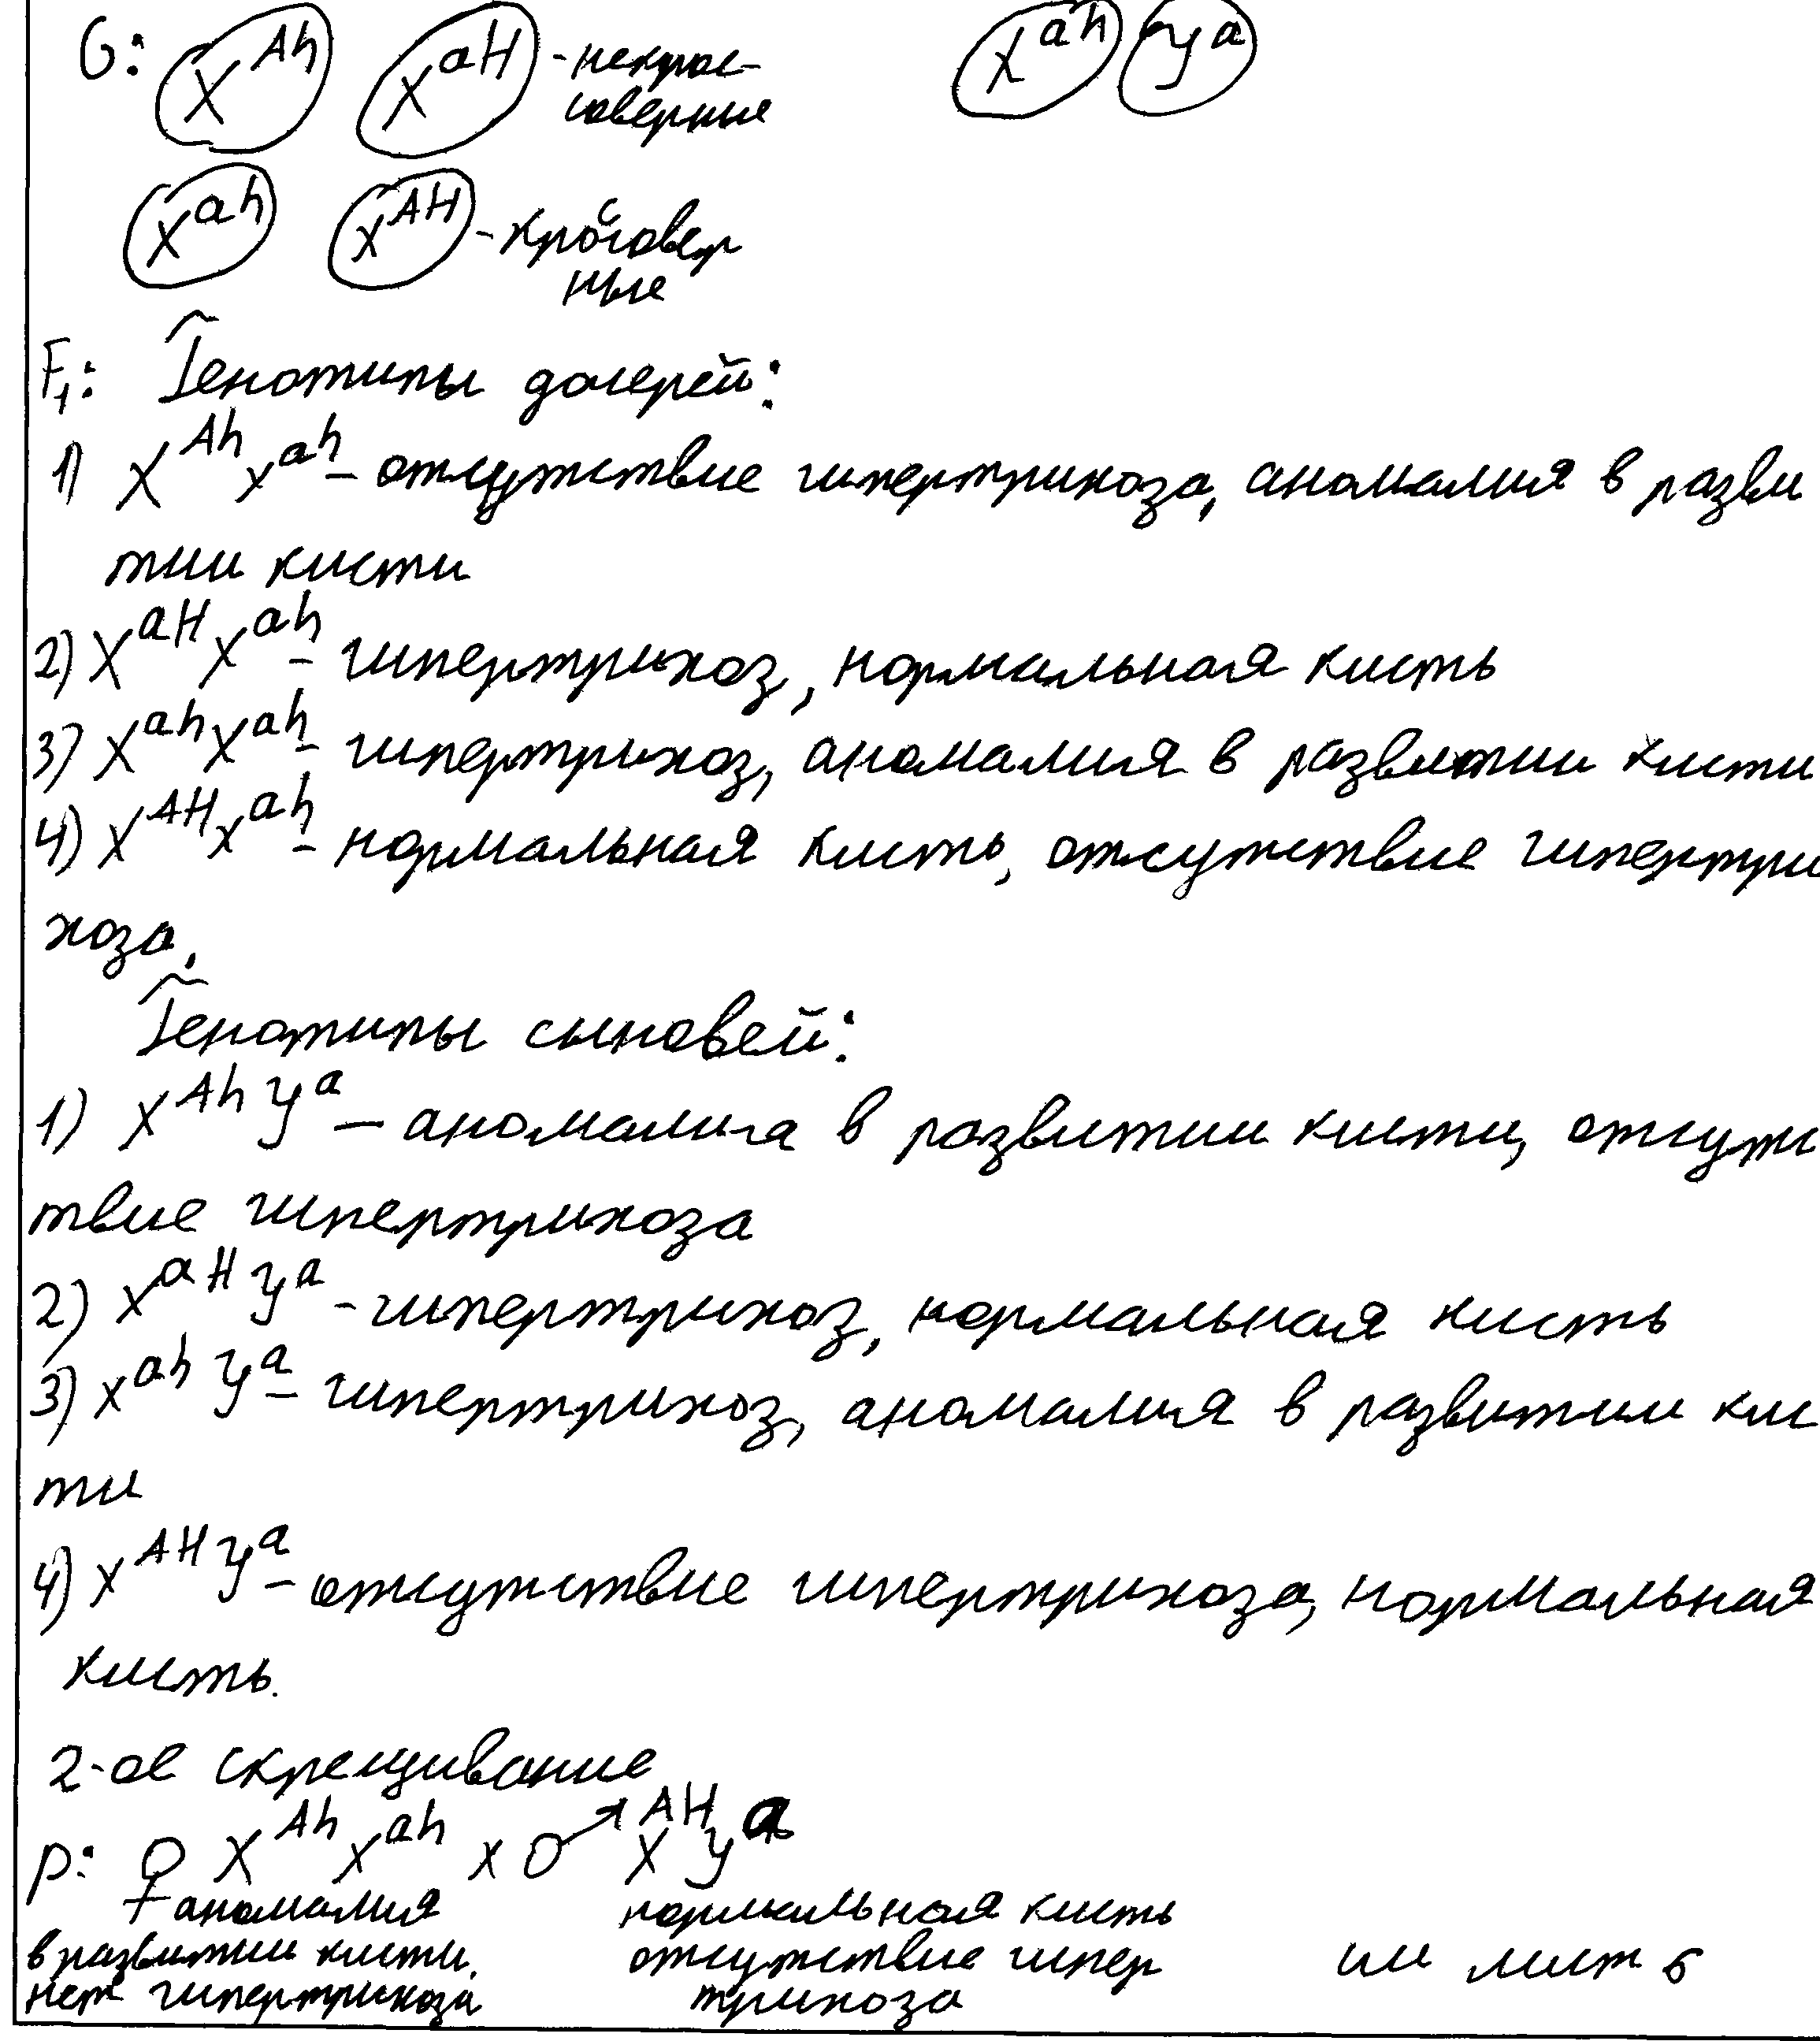 G: X^Ah X^aH - некрос- X^ah У^a
соверные
X^ah X^AH - кроссовер
ные
F₁: Генотипы дочерей:
1) X^Ah X^ah - отсутствие гипертрихоза, аномалия в разви
тии кисти
2) X^aH X^ah - гипертрихоз, нормальная кисть
3) X^ah X^ah - гипертрихоз, аномалия в развитии кисти
4) X^AH X^ah - нормальная кисть, отсутствие гипертри
хоза.
Генотипы сыновей:
1) X^Ah У^a - аномалия в развитии кисти, отсутс
твие гипертрихоза
2) X^aH У^a - гипертрихоз, нормальная кисть
3) X^ah У^a - гипертрихоз, аномалия в развитии кис
ти
4) X^AH У^a - отсутствие гипертрихоза, нормальная
кисть.
2-ое скрещивание
P: ♀ X^Ah X^ah x ♂ X^AH У^a
аномалия нормальная кисть
в развитии кисти, отсутствие гипер см лист 6
нет гипертрихоза трихоза